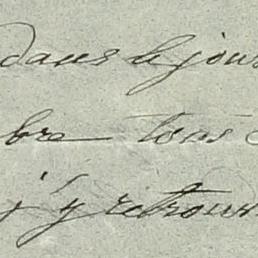 dans le jour
bre tous
j'y retrouv